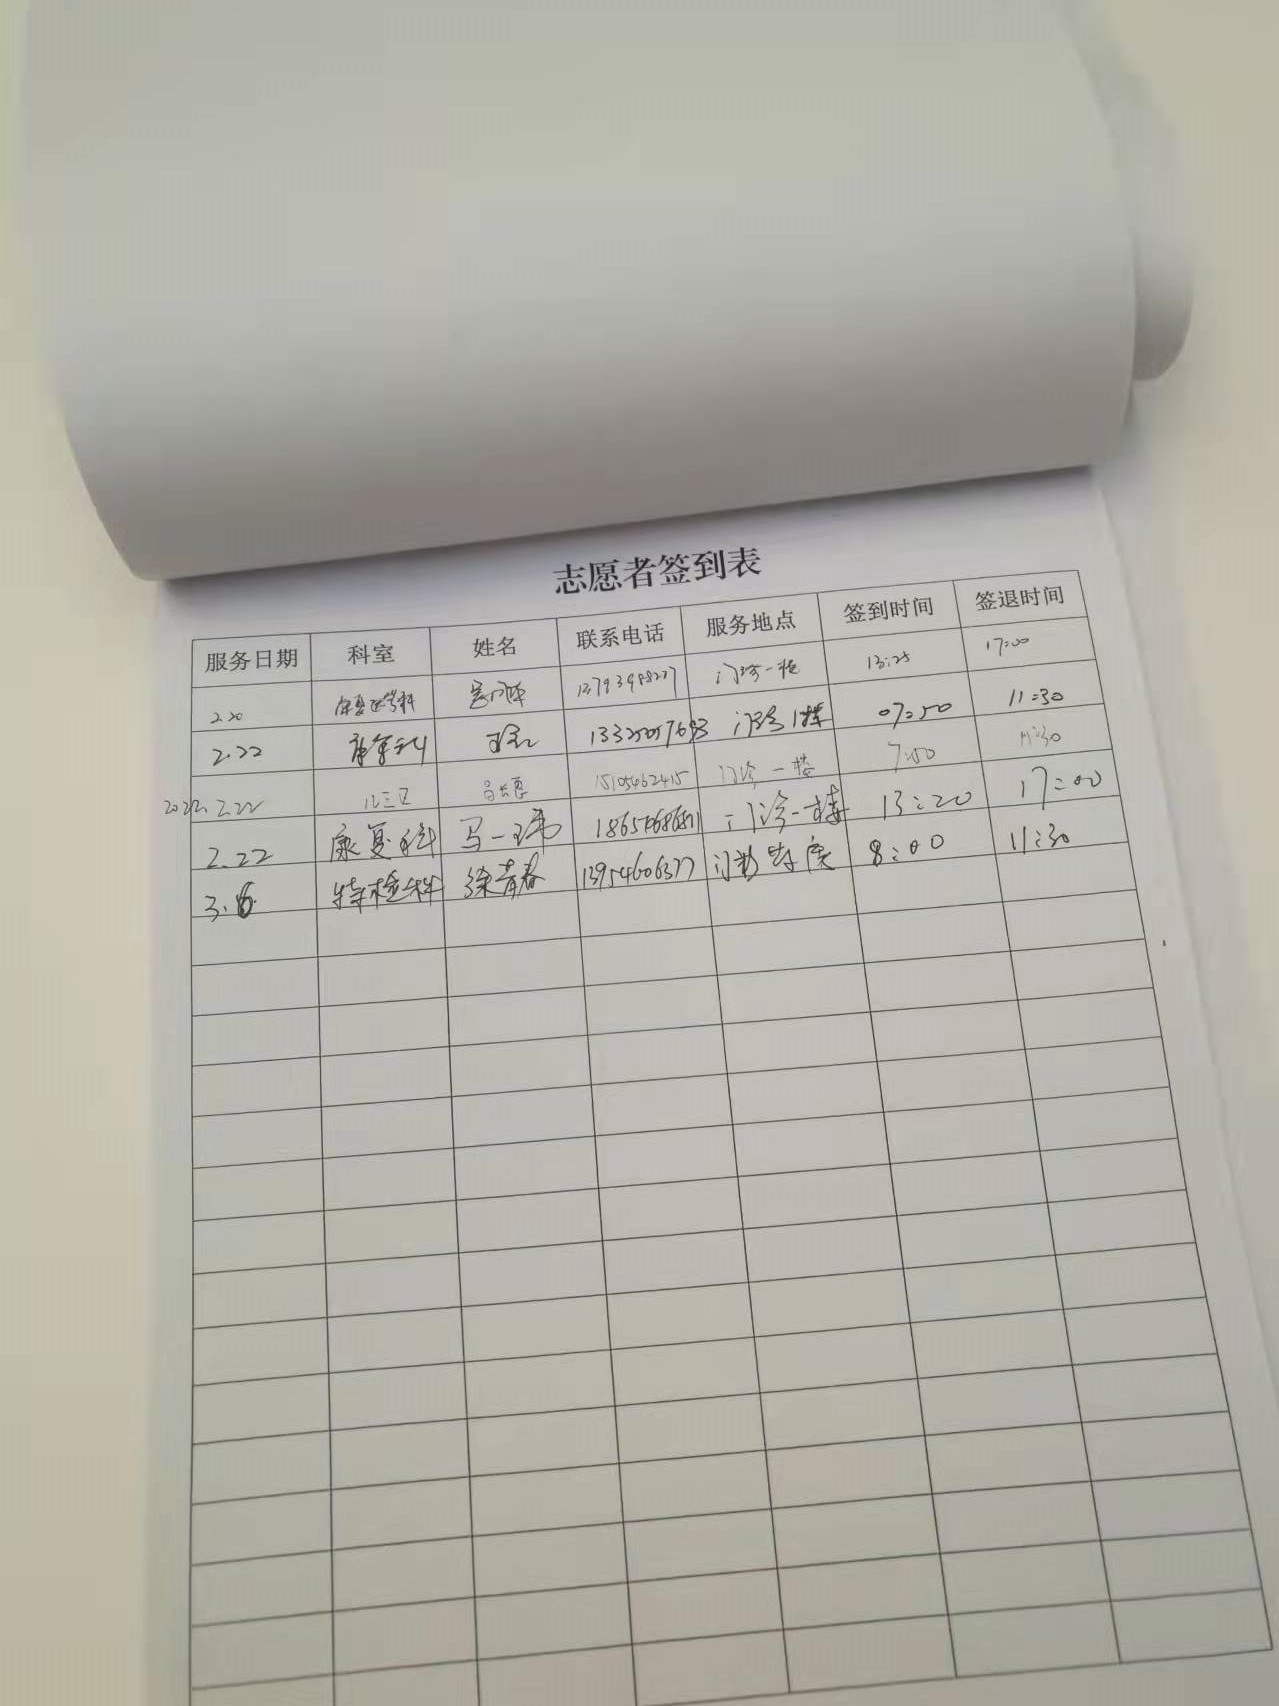 志愿者签到表
服务日期 科室 姓名 联系电话 服务地点 签到时间 签退时间
2.20 门诊一楼 13:25 17:00
2.22 康复科 门诊1楼 07:50 11:30
2022.2.22 儿三区 15105462415 门诊一楼 7:50 11:30
2.22 康复科 马一玮 门诊一楼 13:20 17:00
3.6 特检科 徐青春 13954606377 8:00 11:30